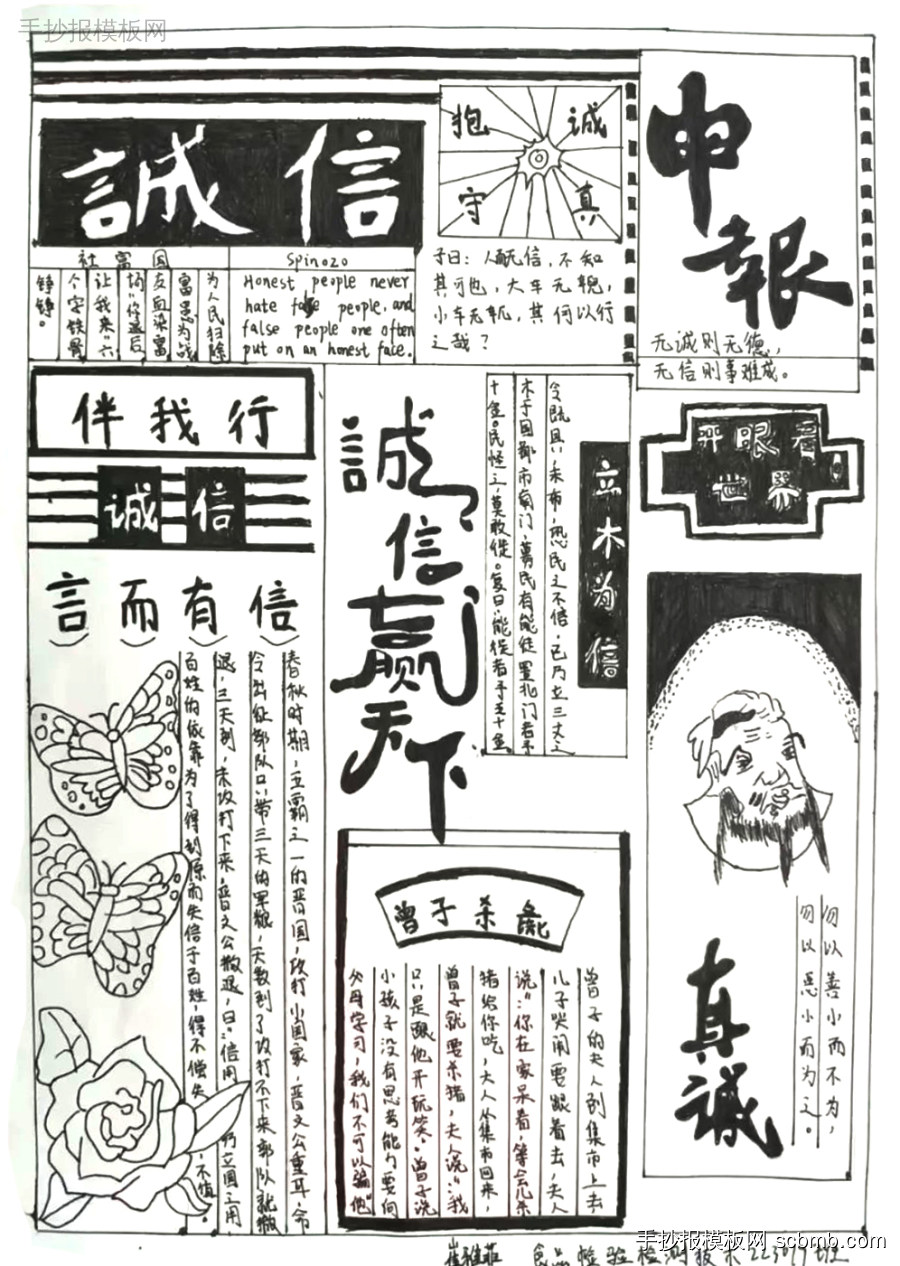 手抄报模板网
誠信
抱诚
守真
申報
社富国
为人民扫除
富恶为战
友血染富
让我来“六
个字铁骨
铮铮。
Spinozo
Honest people never
hate false people, and
false people one often
put on an honest face.
子曰：人而无信，不知
其可也，大车无輗，
小车无軏，其何以行
之哉？
无诚则无德，
无信则事难成。
伴我行
诚信
言而有信
春秋时期，五霸之一的晋国，攻打小国家，晋文公重耳，命
令出征部队只带三天的军粮，天数到了攻打不下来部队就撤
退，三天到，未攻打下来，晋文公撤退，曰：信用 乃立国之用
百姓的依靠为了得到原而失信于百姓，得不偿失 不值。
誠信赢天下
立木为信
令既具，未布，恐民之不信，已乃立三丈之
木于国都市南门，募民有能徙置北门者予
十金。民怪之，莫敢徙。复曰：能徙者予五十金。
开眼看
世界
曾子杀彘
曾子的夫人到集市上去
儿子哭闹要跟着去，夫人
说：“你在家呆着，等会儿杀
猪给你吃，大人从集市回来，
曾子就要杀猪，夫人说：“我
只是跟他开玩笑。”曾子说
小孩子没有思考能力要向
父母学习，我们不可以骗他”
勿以善小而不为，
勿以恶小而为之。
真诚
崔雅菲 食品检验检测技术223017班
手抄报模板网 scbmb.com